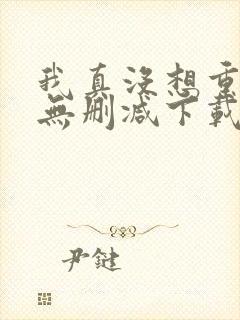 我真没想重
無删减下載
尹鍵